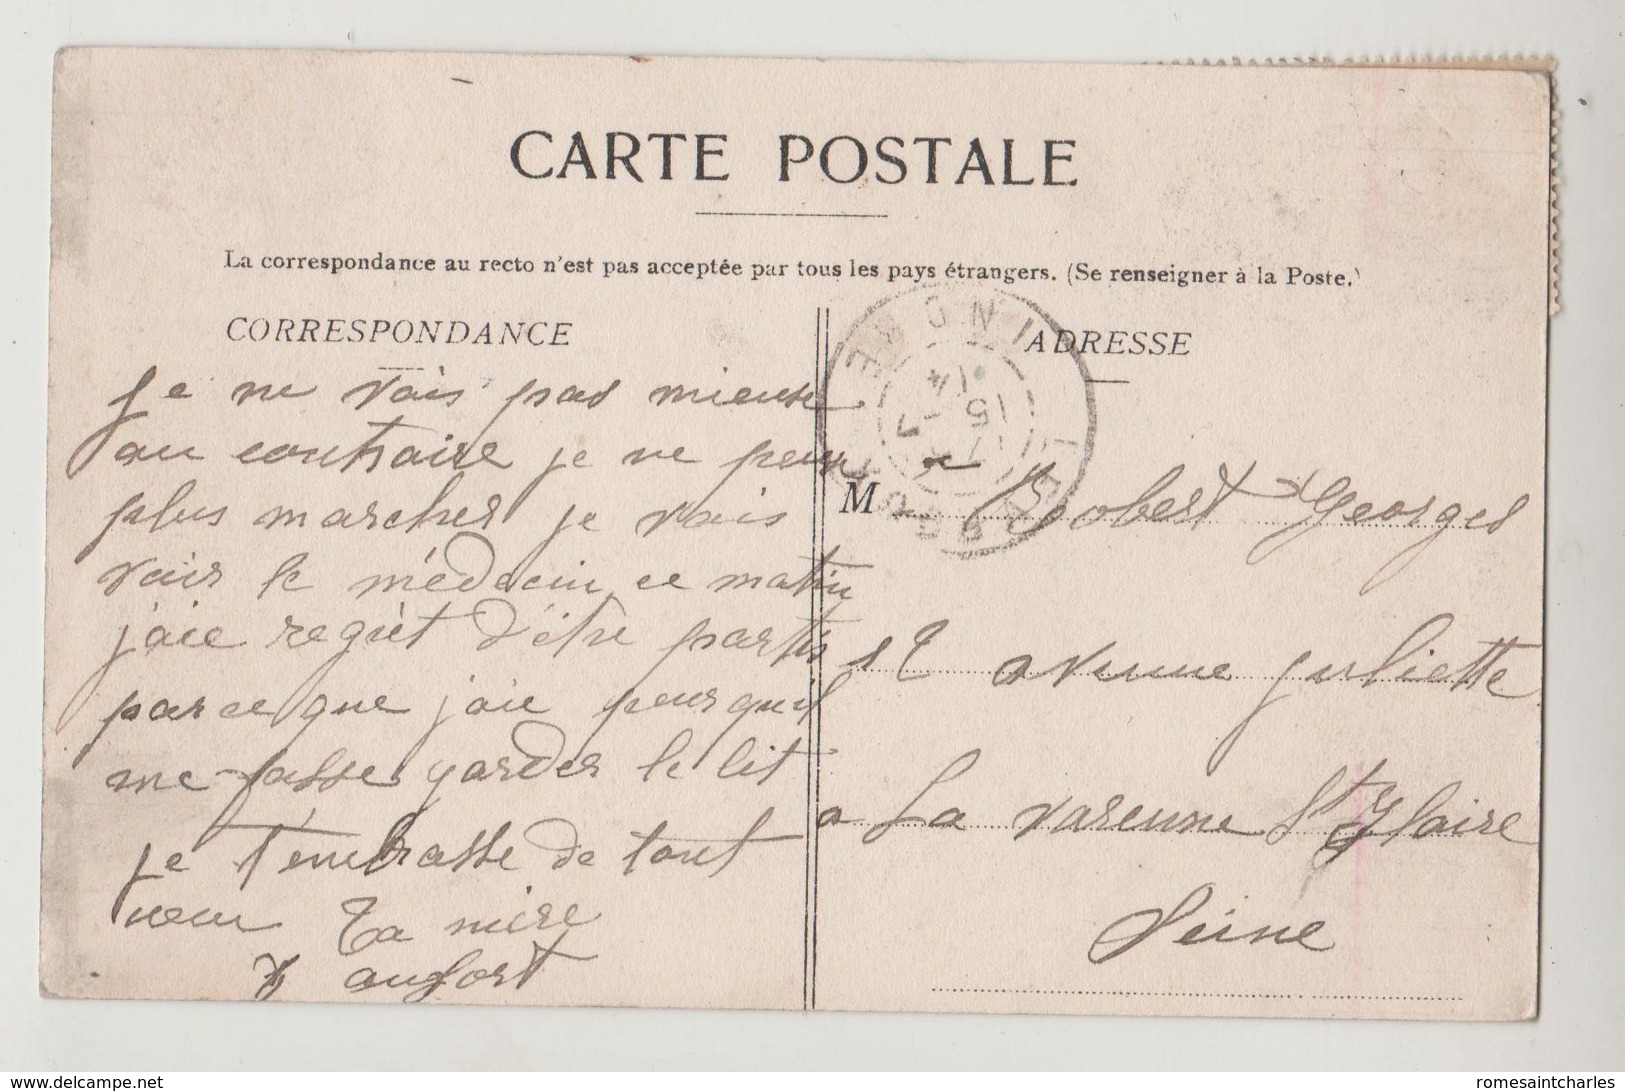 CARTE POSTALE
La correspondance au recto n'est pas acceptée par tous les pays étrangers. (Se renseigner à la Poste.)
CORRESPONDANCE
je ne vais pas mieuse
au contraire je ne peux
plus marcher je vais
voir le médecin ce matin
j'aie regrèt d'être partis
parce que j'aie peur qu'il
me fasse garder le lit
je t'embrasse de tout
cœur Ta mère
ADRESSE
M Robert Georges
avenue juliette
a La varenne St Hlaire
Seine
delcampe.net
romesaintcharles